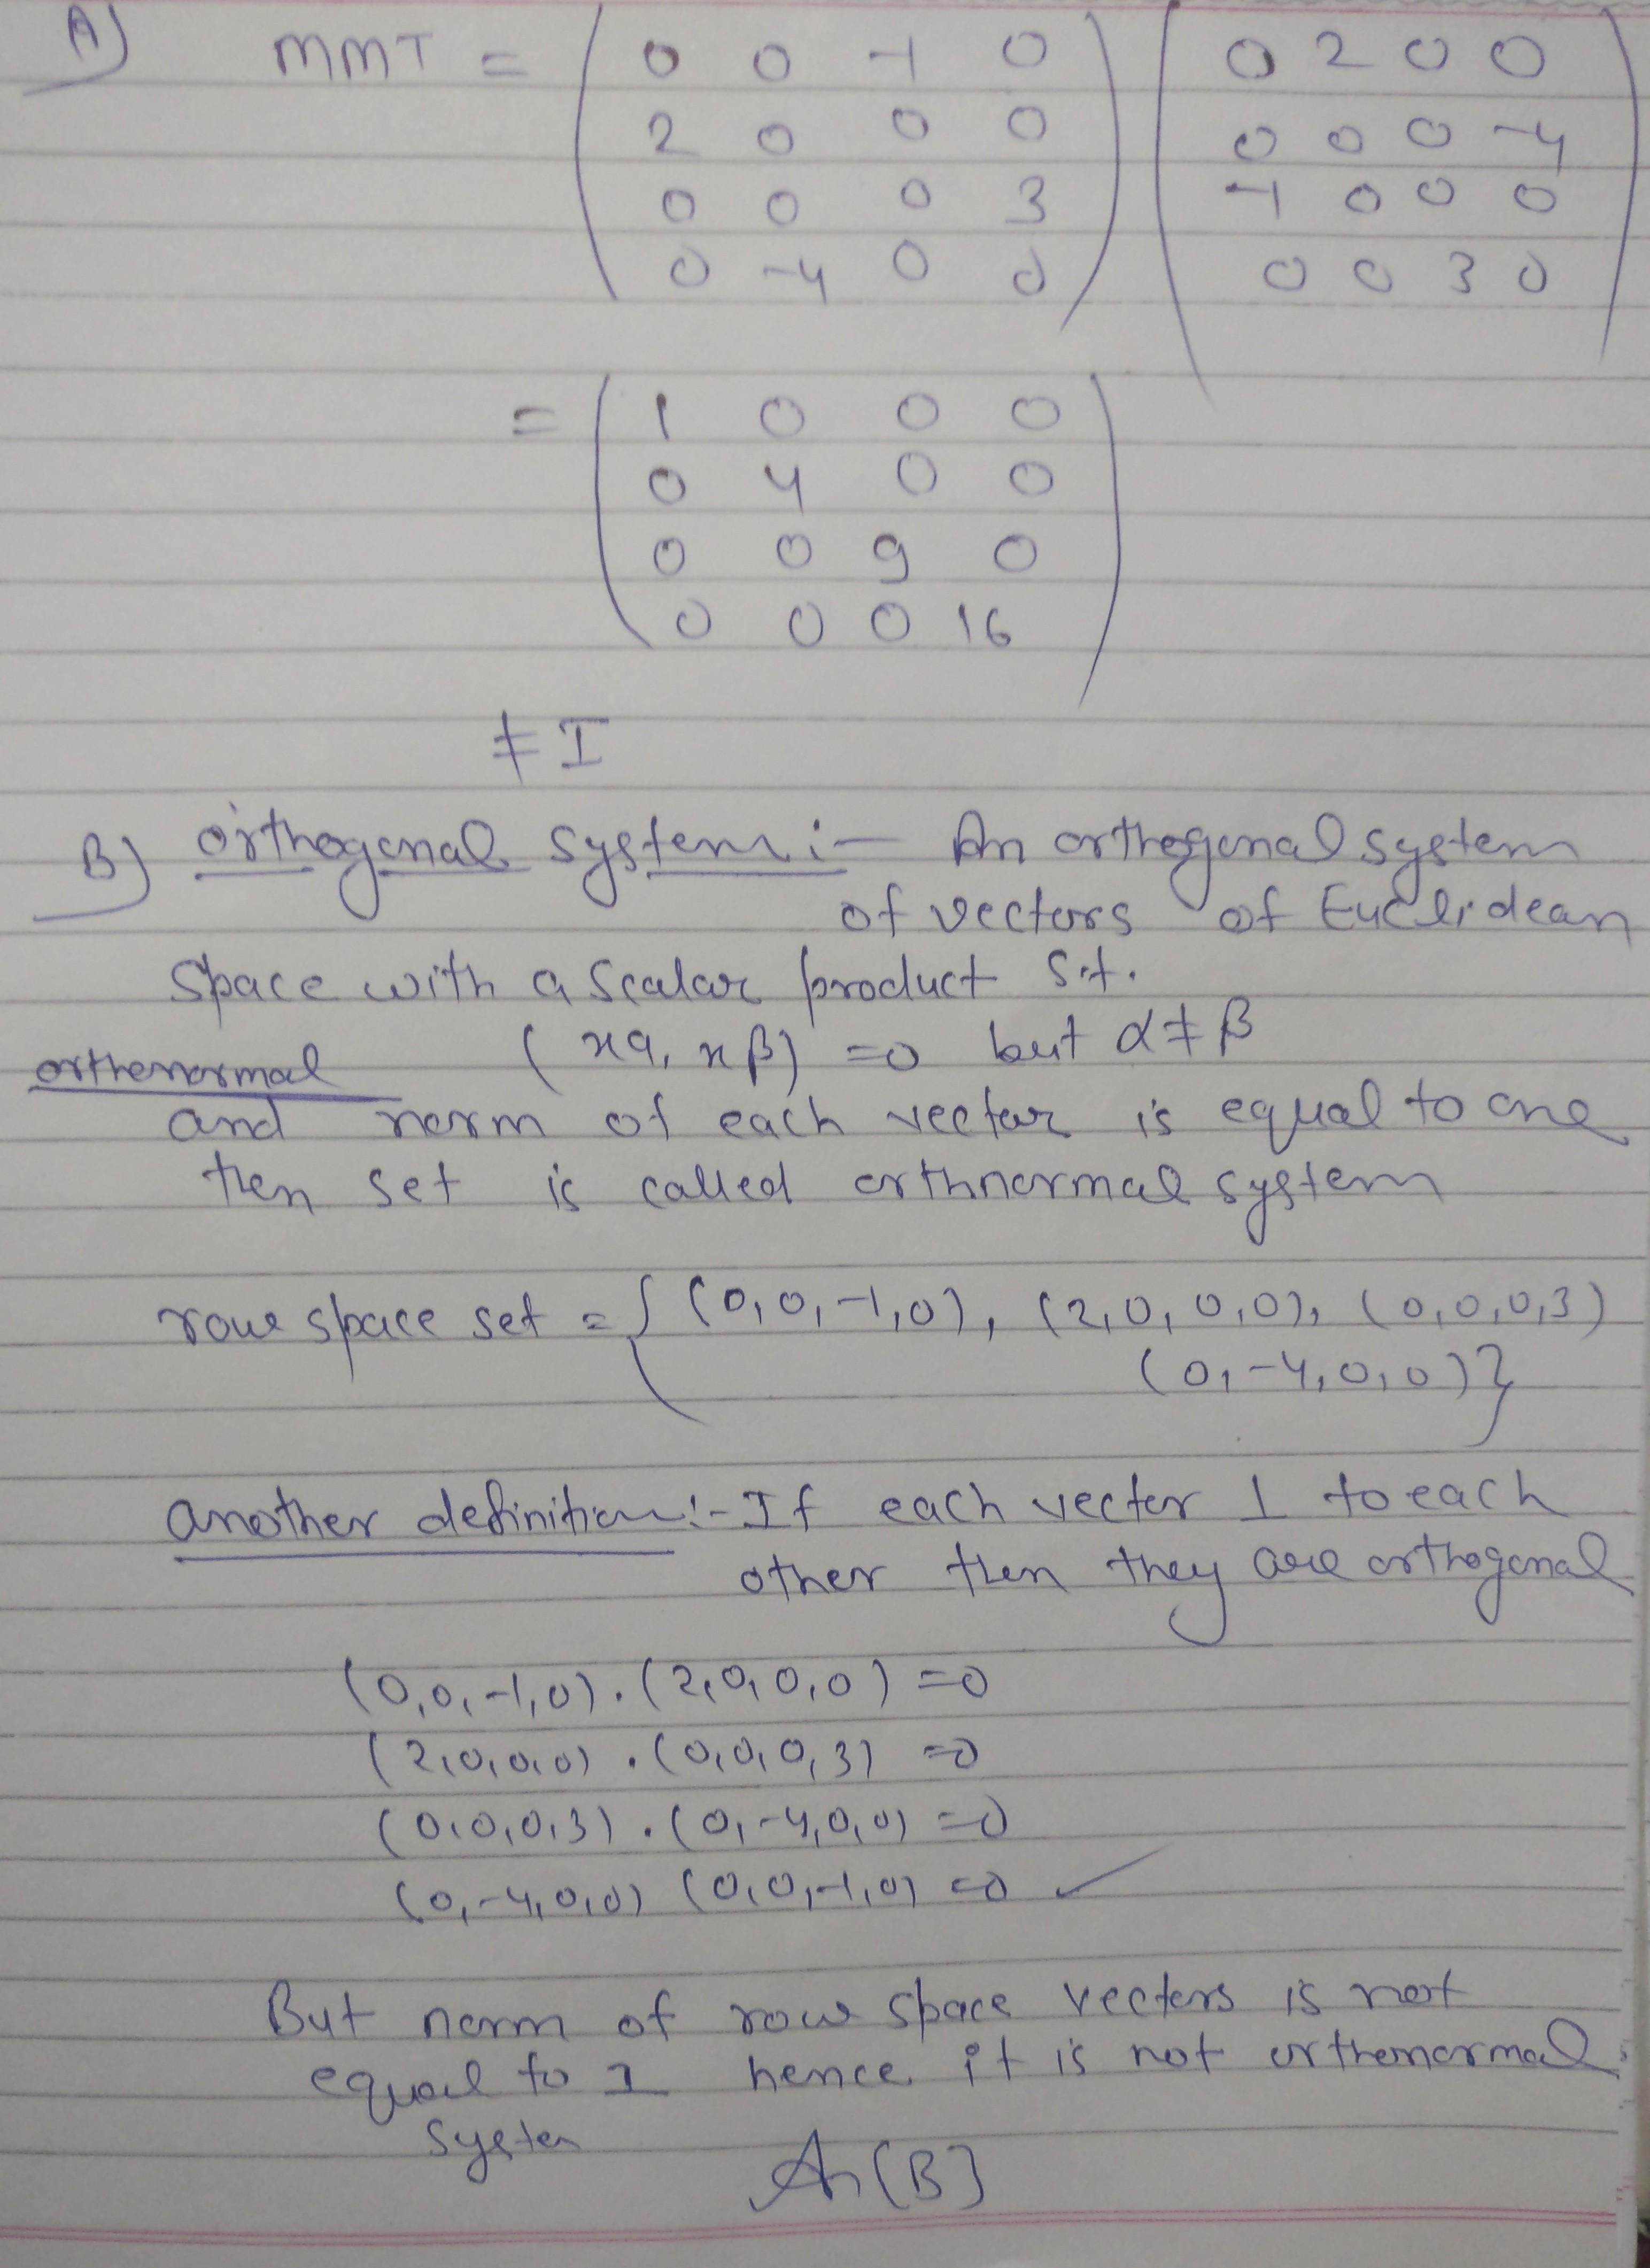 A) MMT = ( 0 0 -1 0 ) ( 0 2 0 0 )
2 0 0 0 0 0 0 -4
0 0 0 3 -1 0 0 0
0 -4 0 0 0 0 3 0
= ( 1 0 0 0 )
0 4 0 0
0 0 9 0
0 0 0 16
≠ I
B) orthogonal system :- An orthogonal system
of vectors of Euclidean
space with a scalar product s.t.
(xα, xβ) =0 but α ≠ β
orthonormal
and norm of each vector is equal to one
then set is called orthnormal system
row space set = { (0,0,-1,0), (2,0,0,0), (0,0,0,3)
(0,-4,0,0) }
another definition:- If each vector ⊥ to each
other then they are orthogonal
(0,0,-1,0).(2,0,0,0) =0
(2,0,0,0).(0,0,0,3) =0
(0,0,0,3).(0,-4,0,0) =0
(0,-4,0,0) (0,0,-1,0) =0 ✓
But norm of row space vectors is not
equal to 1 hence it is not orthonormal
system
An (B)